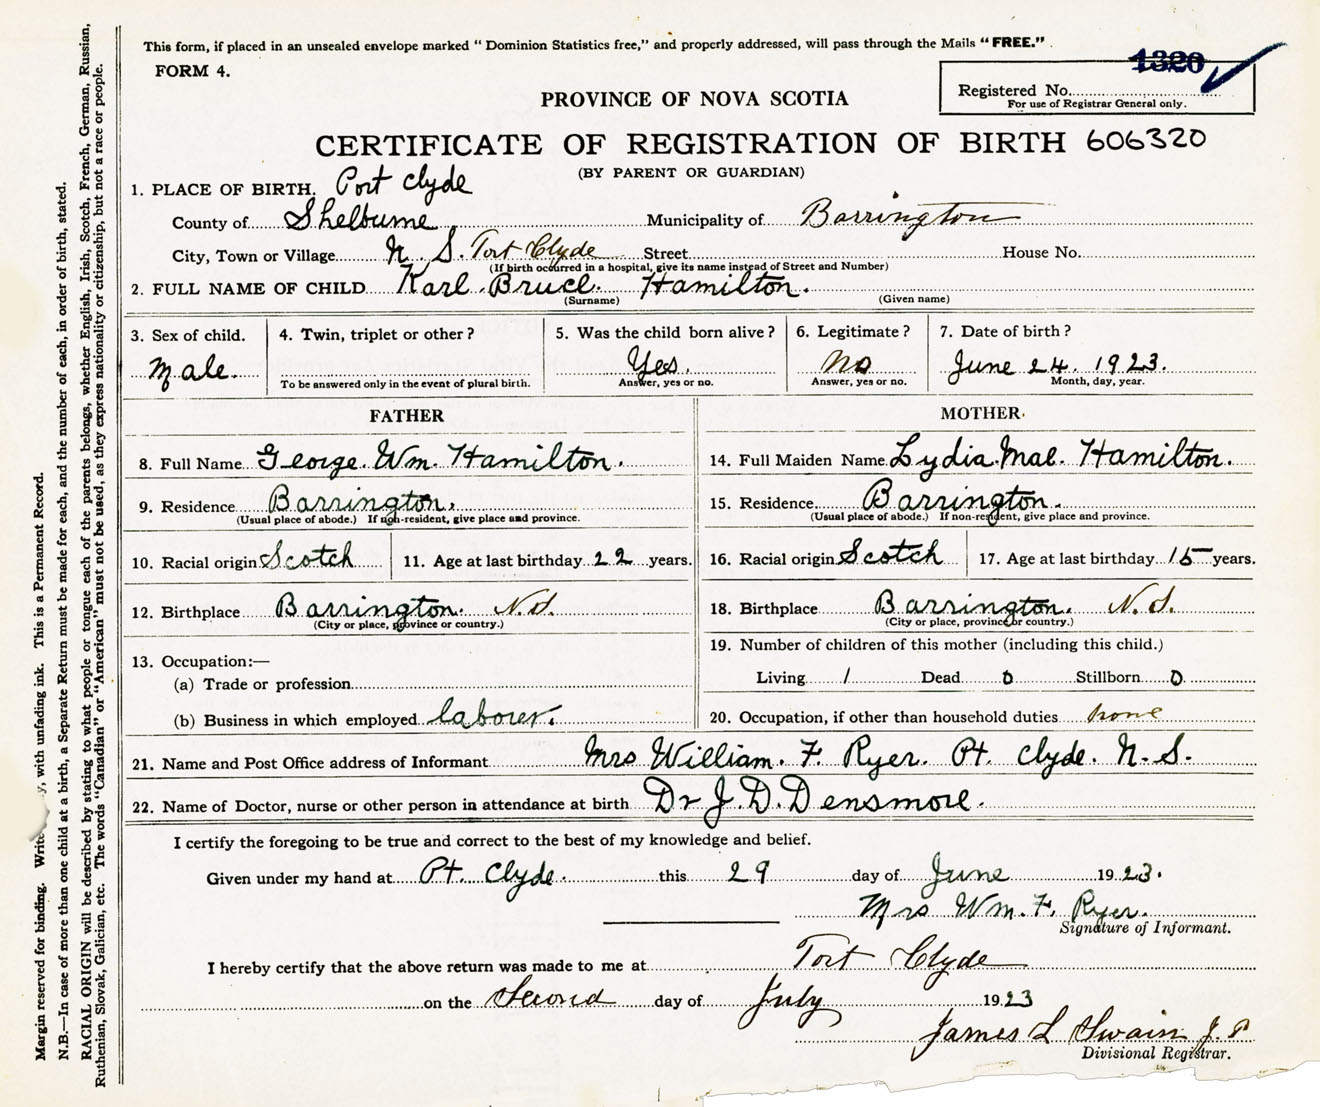 This form, if placed in an unsealed envelope marked "Dominion Statistics free," and properly addressed, will pass through the Mails "FREE."
FORM 4.
1320
Registered No.
For use of Registrar General only.
PROVINCE OF NOVA SCOTIA
CERTIFICATE OF REGISTRATION OF BIRTH 606320
(BY PARENT OR GUARDIAN)
1. PLACE OF BIRTH. Port Clyde
County of Shelburne Municipality of Barrington
City, Town or Village N. S. Port Clyde Street House No.
(If birth occurred in a hospital, give its name instead of Street and Number)
2. FULL NAME OF CHILD Karl Bruce Hamilton.
(Surname) (Given name)
3. Sex of child. 4. Twin, triplet or other? 5. Was the child born alive? 6. Legitimate? 7. Date of birth?
Male. Yes. No June 24. 1923.
To be answered only in the event of plural birth. Answer, yes or no. Answer, yes or no. Month, day, year.
FATHER MOTHER.
8. Full Name George. Wm. Hamilton. 14. Full Maiden Name Lydia Mae. Hamilton.
9. Residence Barrington. 15. Residence Barrington.
(Usual place of abode.) If non-resident, give place and province. (Usual place of abode.) If non-resident, give place and province.
10. Racial origin Scotch 11. Age at last birthday 22 years. 16. Racial origin Scotch 17. Age at last birthday 15 years.
12. Birthplace Barrington. N.S. 18. Birthplace Barrington. N.S.
(City or place, province or country.) (City or place, province or country.)
19. Number of children of this mother (including this child.)
13. Occupation:—
(a) Trade or profession Living 1 Dead 0 Stillborn 0
(b) Business in which employed laborer. 20. Occupation, if other than household duties none
21. Name and Post Office address of Informant Mrs William. F. Ryer. Pt. Clyde. N. S.
22. Name of Doctor, nurse or other person in attendance at birth Dr J. D. Densmore.
I certify the foregoing to be true and correct to the best of my knowledge and belief.
Given under my hand at Pt. Clyde. this 29 day of June 1923.
Mrs Wm. F. Ryer.
Signature of Informant.
I hereby certify that the above return was made to me at Port Clyde
on the Second day of July 1923
James L Swain J. P
Divisional Registrar.
Margin reserved for binding. Write , with unfading ink. This is a Permanent Record.
N.B.—In case of more than one child at a birth, a Separate Return must be made for each, and the number of each, in order of birth, stated.
RACIAL ORIGIN will be described by stating to what people or tongue each of the parents belongs, whether English, Irish, Scotch, French, German, Russian,
Ruthenian, Slovak, Galician, etc. The words "Canadian" or "American" must not be used, as they express nationality or citizenship, but not a race or people.